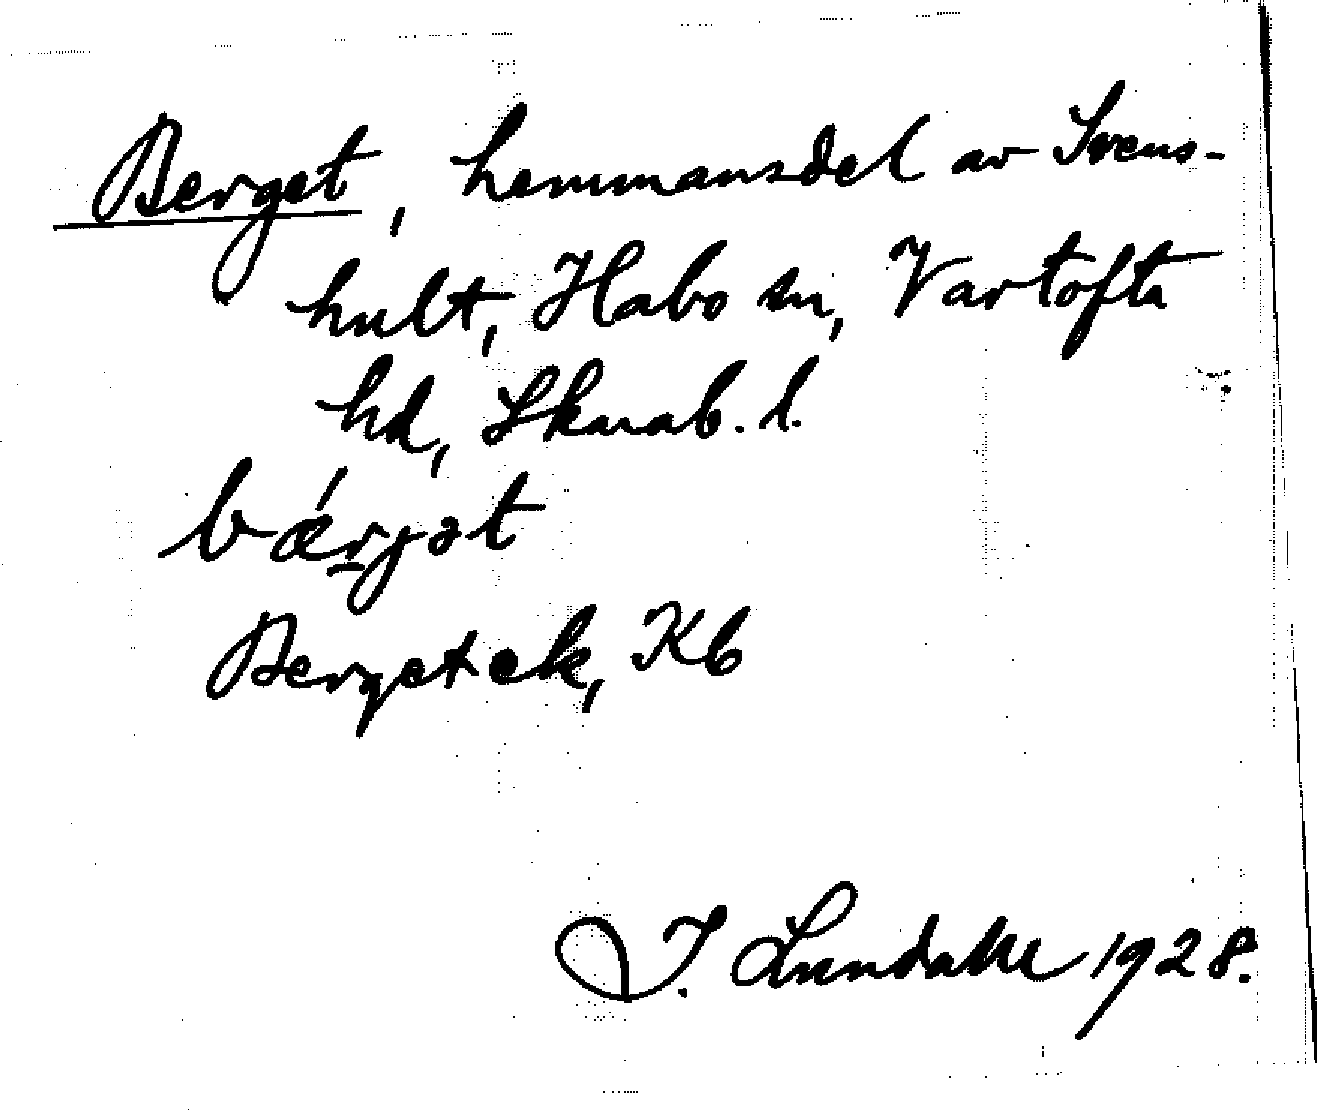 Berget, hemmansdel av Svens-
hult, Habo sn, Vartofta
hd, Skarab. l.
bǽrjət
Berget ek, Kb
I. Lundahl 1928.